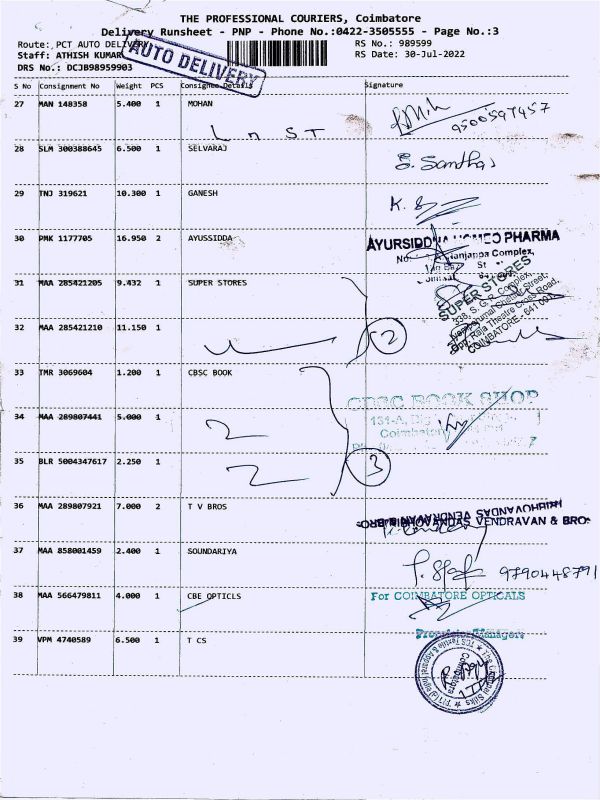 THE PROFESSIONAL COURIERS, Coimbatore
Delivery Runsheet - PNP - Phone No.:0422-3505555 - Page No.:3
Route: PCT AUTO DELIVERY
RS No.: 989599
Staff: ATHISH KUMAR
RS Date: 30-Jul-2022
DRS No.: DCJB98959903
AUTO DELIVERY
S No Consignment No Weight PCS Consignee Details Signature
27 MAN 148358 5.400 1 MOHAN
9500597457
28 SLM 300388645 6.500 1 SELVARAJ
29 TNJ 319621 10.300 1 GANESH
30 PMK 1177705 16.950 2 AYUSSIDDA
31 MAA 285421205 9.432 1 SUPER STORES
SUPER STORES
328, S. G. R. Complex,
COIMBATORE - 641 001
32 MAA 285421210 11.150 1
2
33 TMR 3069604 1.200 1 CBSC BOOK
CBSC BOOK SHOP
34 MAA 289807441 5.000 1
35 BLR 5004347617 2.250 1
3
36 MAA 289807921 7.000 2 T V BROS
VENDRAVAN & BROS
37 MAA 858001459 2.400 1 SOUNDARIYA
9790448791
38 MAA 566479811 4.000 1 CBE OPTICLS
For COIMBATORE OPTICALS
39 VPM 4740589 6.500 1 T CS